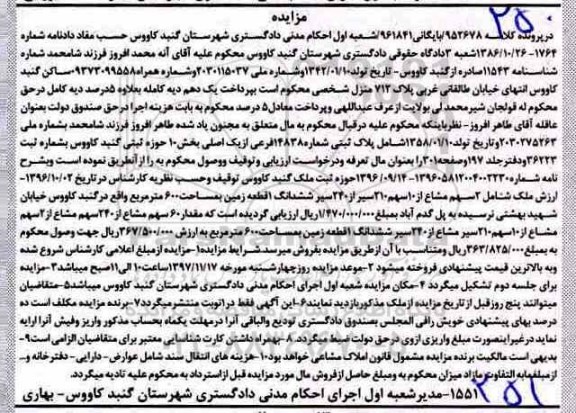 ۲۵۰
مزایده
درپرونده کلاسه ۹۵۲۶۷۸/بایگانی۹۶۱۸۴۱/شعبه اول احکام مدنی دادگستری شهرستان گنبد کاووس حسب مفاد دادنامه شماره
۱۷۶۴-۱۳۸۶/۱۰/۲۶شعبه ۳دادگاه حقوقی دادگستری شهرستان گنبد کاووس محکوم علیه آقای آنه محمد افروز فرزند شامحمد شماره
شناسنامه ۱۱۵۴۳صادره ازگنبد کاووس- تاریخ تولد۱۳۴۲/۰۱/۱۰وشماره ملی ۲۰۳۰۱۱۵۰۳۷وشماره همراه۰۹۳۷۳۰۹۹۵۵۸-ساکن گنبد
کاووس انتهای خیابان طالقانی غربی پلاک ۷۱۲ منزل شخصی محکوم است بپرداخت یک دهم دیه کامله بعلاوه ۵درصد دیه کامل درحق
محکوم له قولجان شیرمحمد لی بولایت ازعرف عبداللهی وپرداخت معادل۵ درصد محکوم به بابت هزینه اجرا درحق صندوق دولت بعنوان
عاقله آقای طاهر افروز- نظربابنکه محکوم علیه درقبال محکوم به مال متعلق به مجنون یاد شده طاهر افروز فرزند شامحمد بشماره ملی
۲۰۳۰۳۷۵۲۶۳وتاریخ تولد۱۳۵۸/۰۱/۱۰شامل پلاک ثبتی شماره۱۴۸۳۸فرعی ازیک اصلی بخش۱۰ حوزه ثبتی گنبد کاووس بشماره ثبت
۳۶۲۲۳ودفترجلد ۱۹۷صفحه۳۰۱را بعنوان مال تعرفه ودرخواست ارزیابی و توقیف ووصول محکوم به را از آنطریق نموده است وبشرح
نامه شماره ۱۳۹۶۰۵۸۱۲۰۰۴۰۰۳۲۳۰-۱۳۹۶/۰۹/۱۴ حوزه ثبت ملک گنبد کاووس توقیف وحسب نظریه کارشناس در تاریخ ۱۳۹۶/۱۰/۰۲-
ارزش ملک شامل ۲سهم مشاع از۱۰سهم۲۱۰سیر از۲۴۰سیر ششدانگ ۱قطعه زمین بمساحت۶۰۰ مترمربع واقع درگنبد کاووس خیابان
شهید بهشتی نرسیده به پل گدم آباد بمبلغ۱/۴۷۰/۰۰۰/۰۰۰ریال ارزیابی گردیده است که مقدار۶۰ سهم مشاع از۲۴۰سهم مشاع از۲سهم
مشاع از ۱۰سهم۲۱۰سیر مشاع از۲۴۰سیر ششدانگ ۱قطعه زمین بمساحت۶۰۰ مترمربع به ارزش ۳۶۷/۵۰۰/۰۰۰ریال جهت وصول محکوم
به بمبلغ۳۶۳/۸۲۵/۰۰۰ریال ومتناسب با آن ازطریق مزایده بفروش میرسد شرایط مزایده۱-مزایده ازمبلغ اعلامی کارشناس شروع شده
وبه بالاترین قیمت پیشنهادی فروخته میشود ۲-موعد مزایده روزچهارشنبه مورخه ۱۳۹۷/۱۱/۱۷ساعت۱۰ الی۱۱صبح میباشد۳-مزایده
برای جلسه دوم تشکیل میگردد ۴-مکان مزایده شعبه اول اجرای احکام مدنی دادگستری شهرستان گنبد کاووس میباشد۵-متقاضیان
میتوانند پنج روزقبل از تاریخ مزایده ازملک مذکوربازدید نمایند۶-این آگهی فقط درانوبت منتشرمیگردد۷-برنده مزایده مکلف است ده
درصد بهای پیشنهادی خویش رافی المجلس بصندوق دادگستری تودیع والباقی آنرا درمهلت یکماه بحساب مذکور واریز وفیش آنرا ارایه
نماید درغیراینصورت مبلغ واریزی ازوی درحق دولت ضبط میگردد۸- بهمراه داشتن کارت شناسایی معتبر برای متقاضیان الزامی است۹-
بدیهی است مالکیت برنده مزایده مشمول قانون املاک مشاعی خواهد بود۱۰-هزینه های انتقال سند شامل عوارض-دارایی-دفترخانه و...
از مبلغ مابه التفاوت مازاد میزان محکوم به ومبلغ حاصل ازفروش مال مورد مزایده قبل ازاسترداد به محکوم علیه تادیه میگردد.
۱۵۵۱-مدیرشعبه اول اجرای احکام مدنی دادگستری شهرستان گنبد کاووس- بهاری
۲۵۱